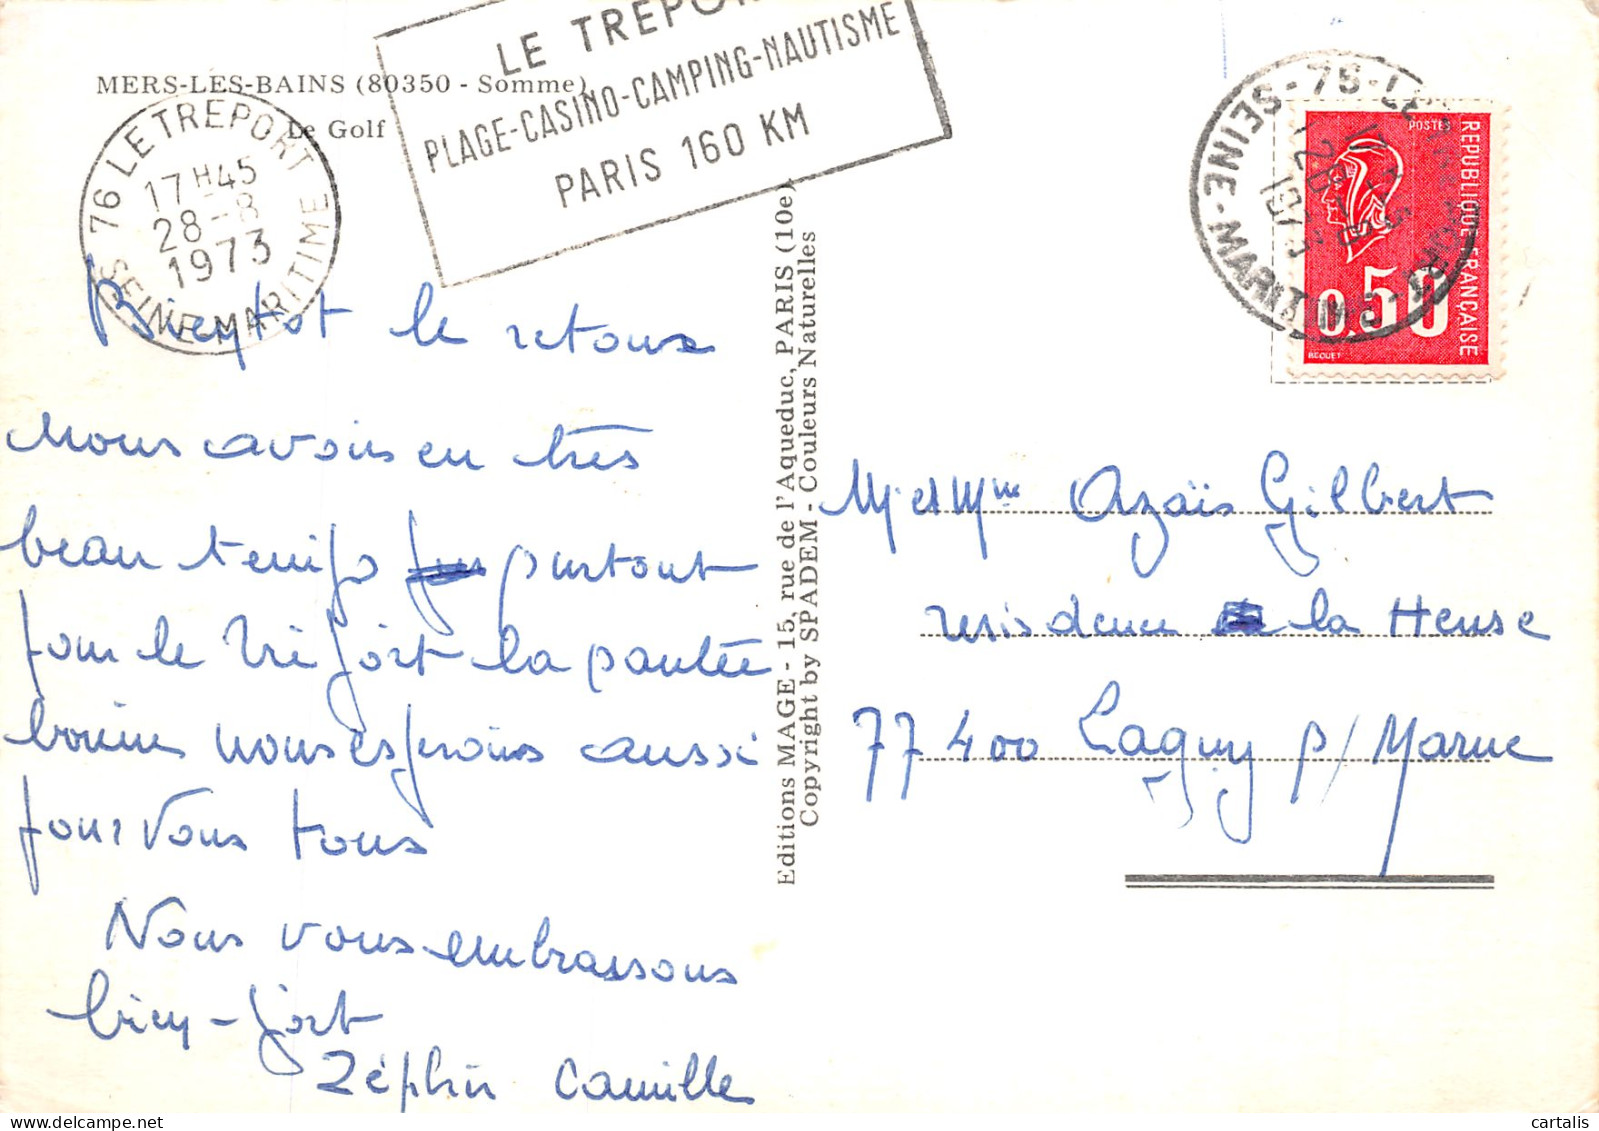 MERS-LES-BAINS (80350 - Somme)
Le Golf
76 LE TREPORT
17H45
28-8
1973
SEINE-MARITIME
LE TREPOR
PLAGE-CASINO-CAMPING-NAUTISME
PARIS 160 KM
POSTES
REPUBLIQUE FRANÇAISE
0,50
BEQUET
SEINE-MARITIME
Bientot le retour
Nous avons eu très
beau temps partout
pour le Tréport la santée
bonne nous espérons aussi
pour Vous tous
Nous vous embrassons
bien fort
Zéphir Camille
Editions MAGE - 15, rue de l'Aqueduc, PARIS (10e)
Copyright by SPADEM - Couleurs Naturelles
M et Mme Azaïs Gilbert
residence la Heuse
77400 Lagny s/ Marne
cartalis